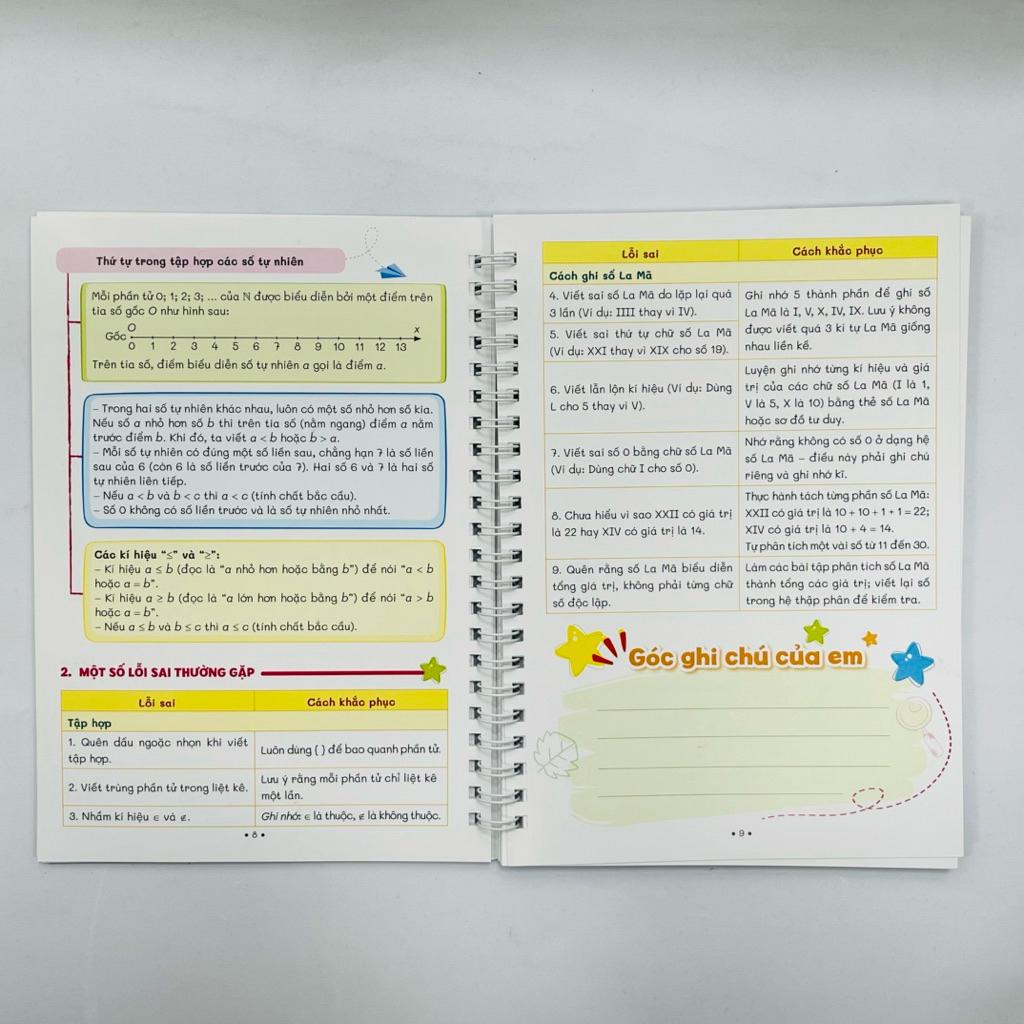 Thứ tự trong tập hợp các số tự nhiên
Mỗi phần tử 0; 1; 2; 3; ... của ℕ được biểu diễn bởi một điểm trên
tia số gốc O như hình sau:
O x
Gốc
0 1 2 3 4 5 6 7 8 9 10 11 12 13
Trên tia số, điểm biểu diễn số tự nhiên a gọi là điểm a.
– Trong hai số tự nhiên khác nhau, luôn có một số nhỏ hơn số kia.
Nếu số a nhỏ hơn số b thì trên tia số (nằm ngang) điểm a nằm
trước điểm b. Khi đó, ta viết a < b hoặc b > a.
– Mỗi số tự nhiên có đúng một số liền sau, chẳng hạn 7 là số liền
sau của 6 (còn 6 là số liền trước của 7). Hai số 6 và 7 là hai số
tự nhiên liên tiếp.
– Nếu a < b và b < c thì a < c (tính chất bắc cầu).
– Số 0 không có số liền trước và là số tự nhiên nhỏ nhất.
Các kí hiệu “≤” và “≥”:
– Kí hiệu a ≤ b (đọc là “a nhỏ hơn hoặc bằng b”) để nói “a < b
hoặc a = b”.
– Kí hiệu a ≥ b (đọc là “a lớn hơn hoặc bằng b”) để nói “a > b
hoặc a = b”.
– Nếu a ≤ b và b ≤ c thì a ≤ c (tính chất bắc cầu).
2. MỘT SỐ LỖI SAI THƯỜNG GẶP
Lỗi sai Cách khắc phục
Tập hợp
1. Quên dấu ngoặc nhọn khi viết
tập hợp.
Luôn dùng { } để bao quanh phần tử.
2. Viết trùng phần tử trong liệt kê.
Lưu ý rằng mỗi phần tử chỉ liệt kê
một lần.
3. Nhầm kí hiệu ∈ và ∉.
Ghi nhớ: ∈ là thuộc, ∉ là không thuộc.
• 8 •
Lỗi sai Cách khắc phục
Cách ghi số La Mã
4. Viết sai số La Mã do lặp lại quá
3 lần (Ví dụ: IIII thay vì IV).
5. Viết sai thứ tự chữ số La Mã
(Ví dụ: XXI thay vì XIX cho số 19).
Ghi nhớ 5 thành phần để ghi số
La Mã là I, V, X, IV, IX. Lưu ý không
được viết quá 3 kí tự La Mã giống
nhau liền kề.
6. Viết lẫn lộn kí hiệu (Ví dụ: Dùng
L cho 5 thay vì V).
Luyện ghi nhớ từng kí hiệu và giá
trị của các chữ số La Mã (I là 1,
V là 5, X là 10) bằng thẻ số La Mã
hoặc sơ đồ tư duy.
7. Viết sai số 0 bằng chữ số La Mã
(Ví dụ: Dùng chữ I cho số 0).
Nhớ rằng không có số 0 ở dạng hệ
số La Mã – điều này phải ghi chú
riêng và ghi nhớ kĩ.
8. Chưa hiểu vì sao XXII có giá trị
là 22 hay XIV có giá trị là 14.
Thực hành tách từng phần số La Mã:
XXII có giá trị là 10 + 10 + 1 + 1 = 22;
XIV có giá trị là 10 + 4 = 14.
Tự phân tích một vài số từ 11 đến 30.
9. Quên rằng số La Mã biểu diễn
tổng giá trị, không phải từng chữ
số độc lập.
Làm các bài tập phân tích số La Mã
thành tổng các giá trị; viết lại số
trong hệ thập phân để kiểm tra.
Góc ghi chú của em
• 9 •